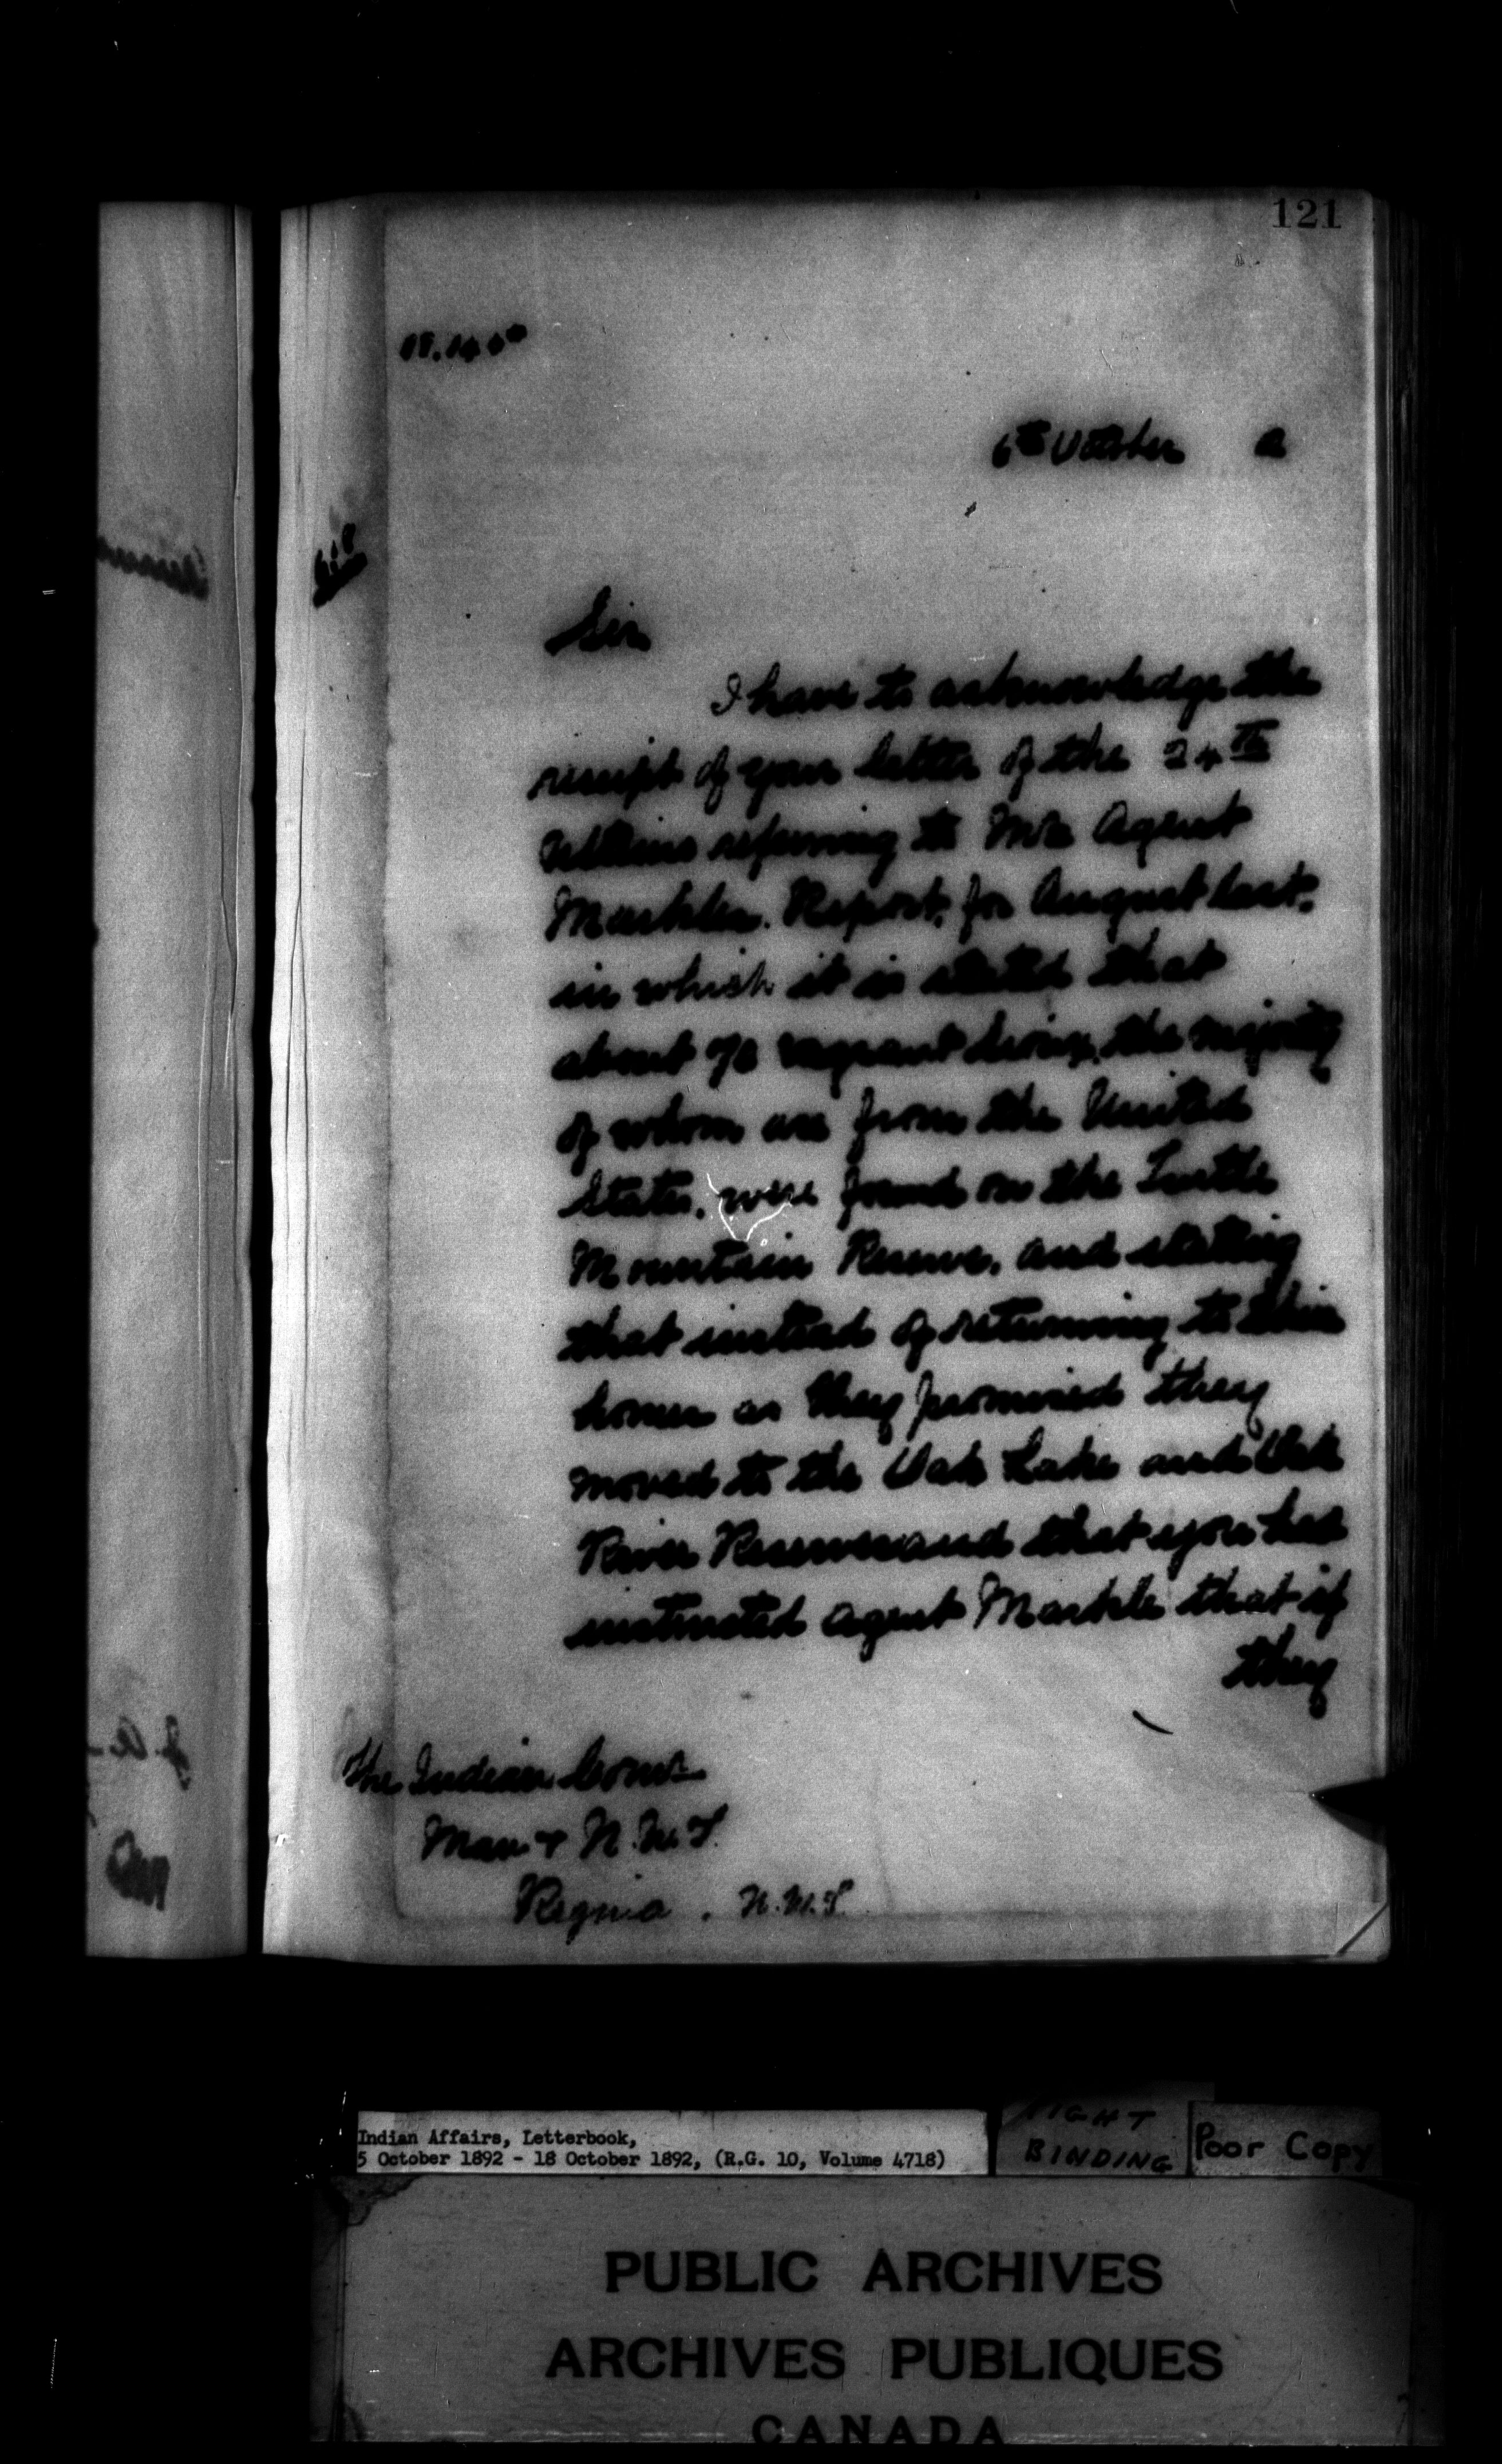 121
6th October 2
Sir
I have to acknowledge the
receipt of your letter of the 24th
Ultimo referring to Mr Agent
Markles Report, for August last,
in which it is stated that
about 70 vagrant Sioux, the majority
of whom are from the United
States, were found on the Turtle
Mountain Reserve, and stating
that instead of returning to their
homes as they promised they
moved to the Oak Lake and Oak
River Reserves and that you had
instructed Agent Markle that if
they
The Indian Comr
Man & N.W.T.
Regina. N.W.T.
Indian Affairs, Letterbook,
5 October 1892 - 18 October 1892, (R.G. 10, Volume 4718)
TIGHT
BINDING
Poor Copy
PUBLIC ARCHIVES
ARCHIVES PUBLIQUES
CANADA